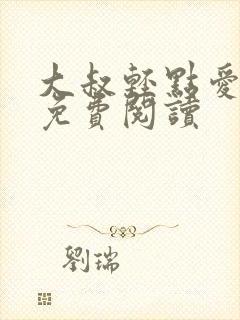 大叔輕點愛
免費閱讀
劉瑞